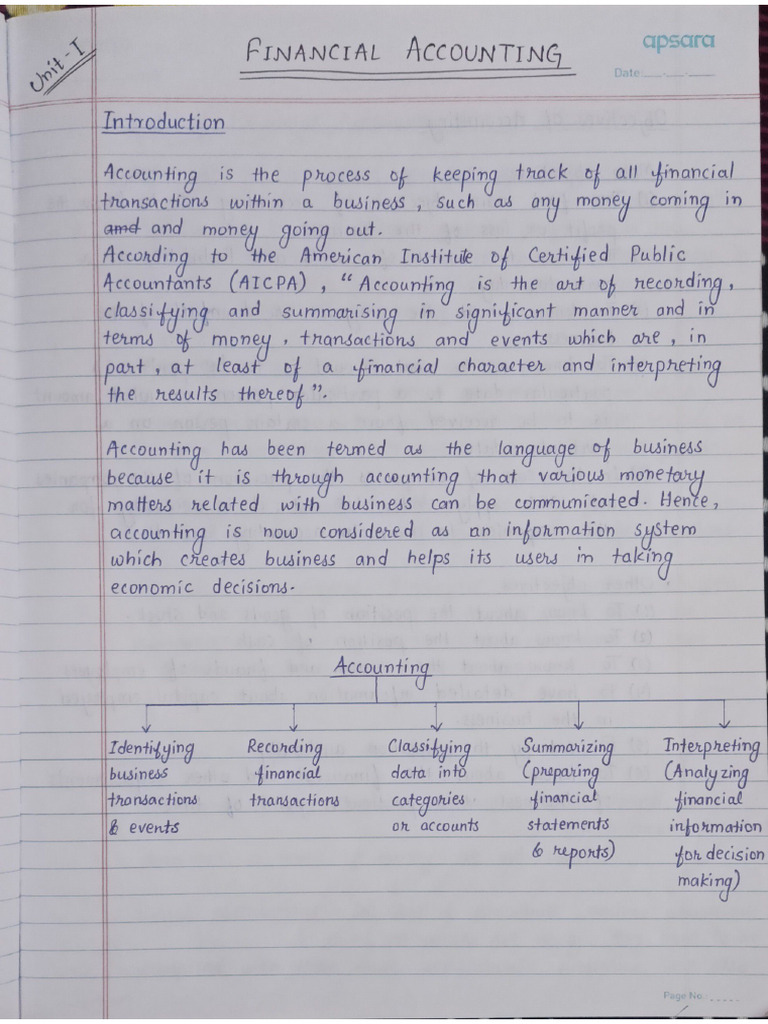 Unit-I
FINANCIAL ACCOUNTING
apsara
Date
Introduction
Accounting is the process of keeping track of all financial
transactions within a business, such as any money coming in
and and money going out.
According to the American Institute of Certified Public
Accountants (AICPA), "Accounting is the art of recording,
classifying and summarising in significant manner and in
terms of money, transactions and events which are, in
part, at least of a financial character and interpreting
the results thereof".
Accounting has been termed as the language of business
because it is through accounting that various monetary
matters related with business can be communicated. Hence,
accounting is now considered as an information system
which creates business and helps its users in taking
economic decisions.
Accounting
Identifying Recording Classifying Summarizing Interpreting
business financial data into (preparing (Analyzing
transactions transactions categories financial financial
& events or accounts statements information
& reports) for decision
making)
Page No.